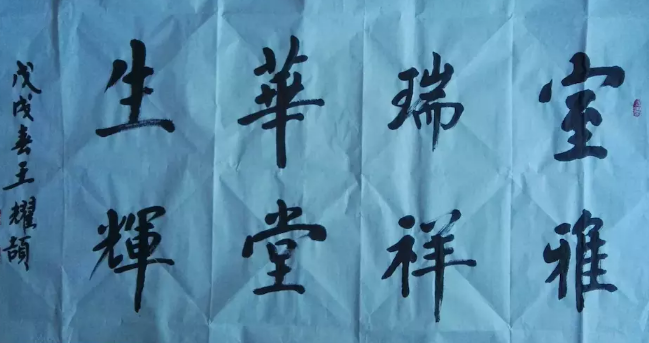 室雅
瑞祥
華堂
生輝
戊戌春王耀頡